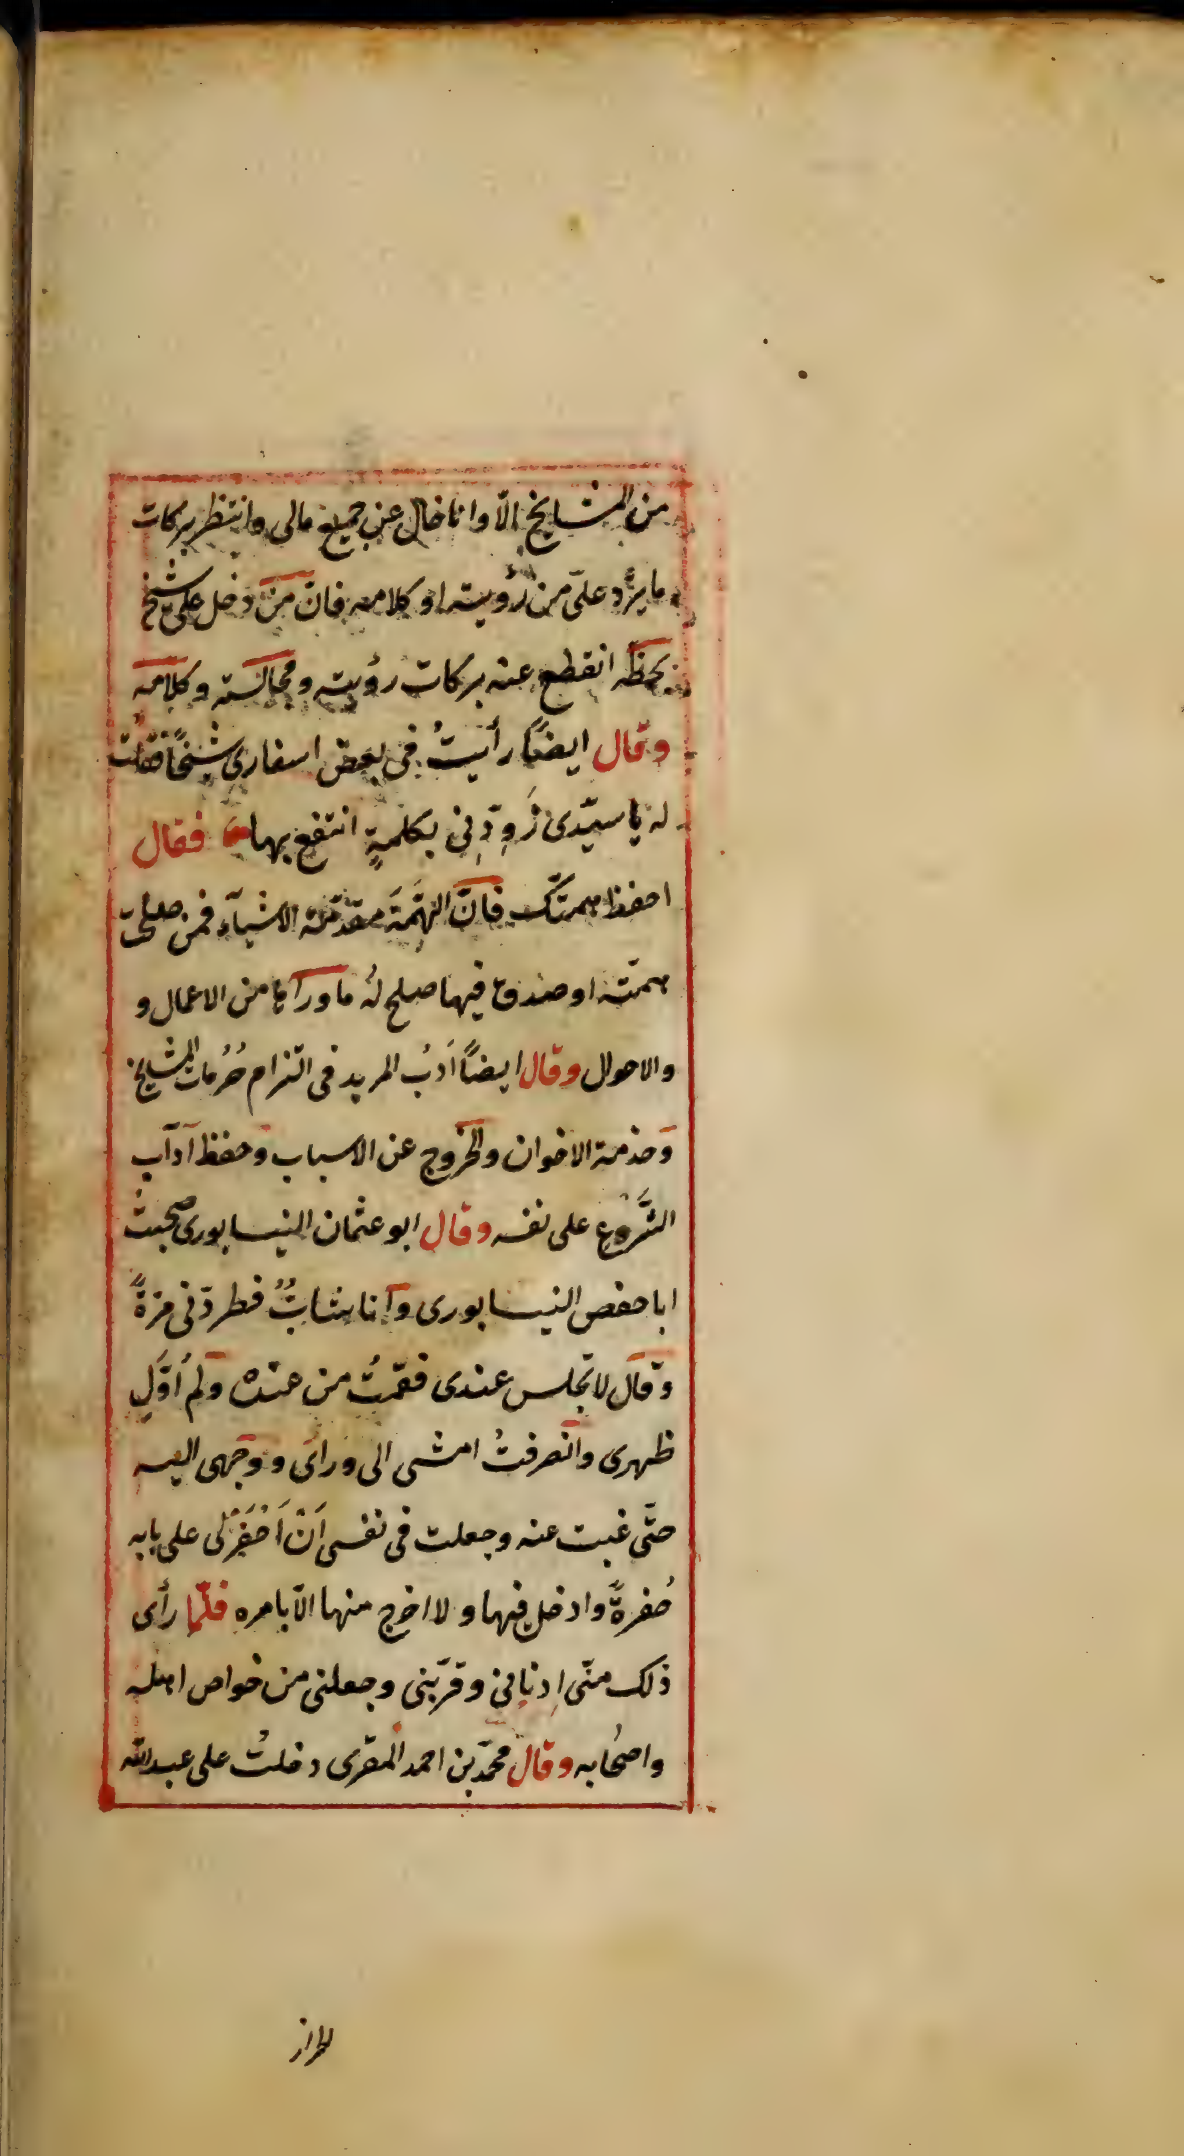 من المشايخ الّا وانا خال عن جميع مالى وانتظر بركات
ما يرُد علىّ من رؤيته او كلامه فانّ من دخل على شيخ
بحظّه انقطع عنه بركات رؤيته ومجالسته وكلامه
وقال ايضًا رأيتُ فى بعض اسفارى شيخًا فقلت
له يا سيّدى زَوِّدِنى بكلمةٍ انتفع بها فقال
احفظ همتك فانّ الهمَّةَ مقدّمة الاشيآء فمن صلحت
همّته او صدق فيها صلح لهُ ما ورآها من الاعمال و
والاحوال وقال ايضًا اَدبُ المريد فى التزام حُرُمات المشايخ
وخدمة الاخوان والخروج عن الاسباب وحفظ آدآب
الشَّروع على نفسه وقال ابو عثمان النيسابورى صحبتُ
ابا حفص النيسابورى وانا شابٌّ فطردّنى مرّةً
وقال لا تجلس عندى فقمتُ من عنده ولم اُوَّلِ
ظهرى وانصرفتُ امشى الى ورائى ووجهى اليه
حتّى غبت عنه وجعلت فى نفسى اَنْ اَحْفِرَ لى على بابه
حُفرةً وادخل فيها ولا اخرج منها الّا بامره فلمّا رأى
ذلك منّى ادنانى وقرّبنى وجعلنى من خواص اهله
واصحابه وقال محمّد بن احمد المقرى دخلتُ على عبد الله